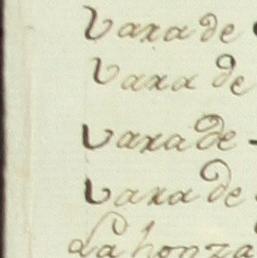 Vara de
Vara de
Vara de
Vara de
La honza